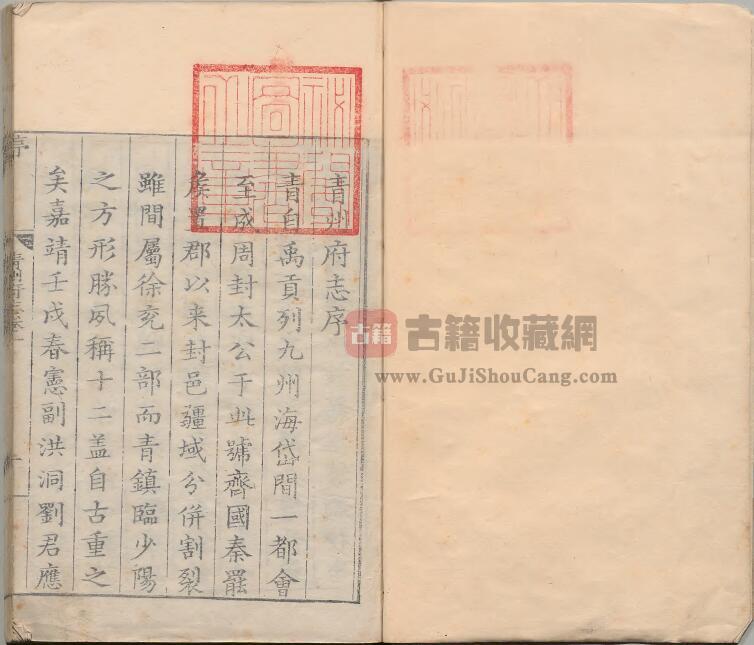 青州府志序
青自禹貢列九州海岱間一都會
至成周封太公于此號齊國秦罷
侯置郡以来封邑疆域分併割裂
雖間屬徐兖二部而青鎮臨少陽
之方形勝夙稱十二盖自古重之
矣嘉靖壬戌春憲副洪洞劉君應
古籍 古籍收藏網
www.GuJiShouCang.com